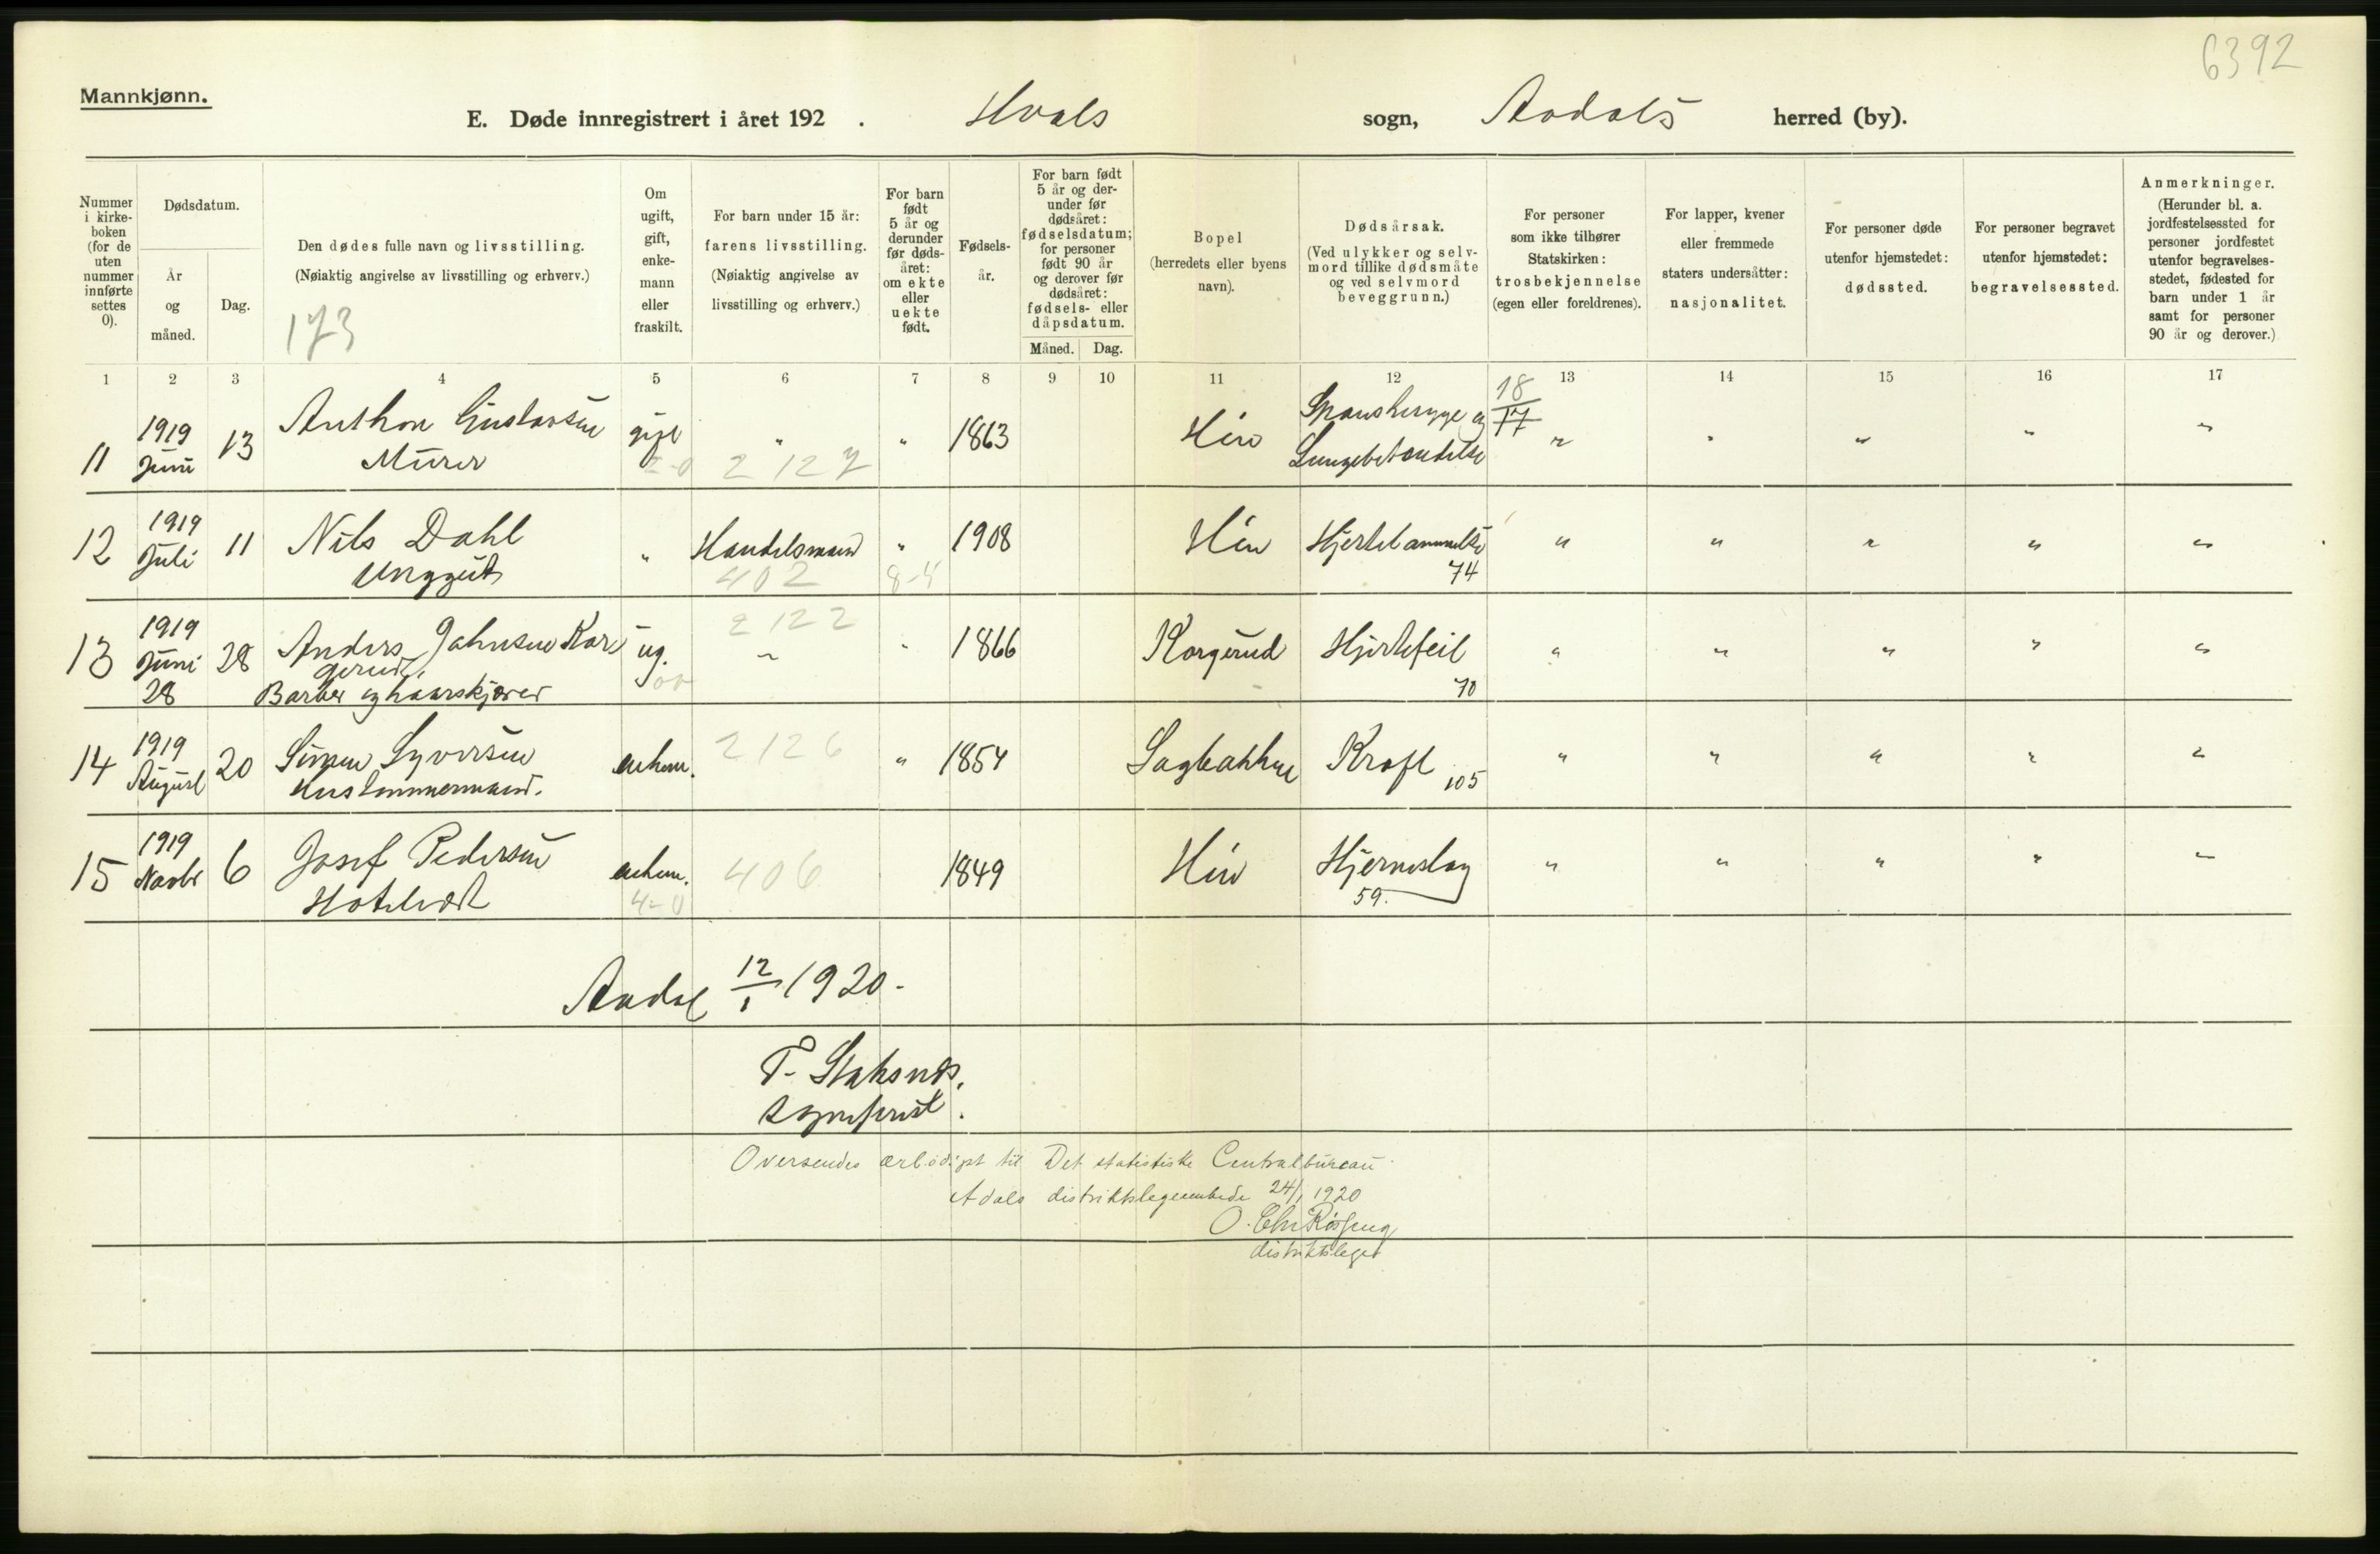 6392
Mannkjønn.
E. Døde innregistrert i året 192 . Hvals sogn, Aadals herred (by).
Nummer i kirke-boken (for de uten nummer innførte settes 0).
Dødsdatum.
År og måned.
Dag.
Den dødes fulle navn og livsstilling.
(Nøiaktig angivelse av livsstilling og erhverv.)
173
Om ugift, gift, enke-mann eller fraskilt.
For barn under 15 år: farens livsstilling. (Nøiaktig angivelse av livsstilling og erhverv.)
For barn født 5 år og derunder før døds-året: om ekte eller uekte født.
Fødsels-år.
For barn født 5 år og der-under før dødsåret: fødselsdatum; for personer født 90 år og derover før dødsåret: fødsels- eller dåpsdatum.
Måned. Dag.
Bopel (herredets eller byens navn).
Dødsårsak. (Ved ulykker og selv-mord tillike dødsmåte og ved selvmord beveggrunn.)
For personer som ikke tilhører Statskirken: trosbekjennelse (egen eller foreldrenes).
For lapper, kvener eller fremmede staters undersåtter: nasjonalitet.
For personer døde utenfor hjemstedet: dødssted.
For personer begravet utenfor hjemstedet: begravelsessted.
Anmerkninger. (Herunder bl. a. jordfestelsessted for personer jordfestet utenfor begravelses-stedet, fødested for barn under 1 år samt for personer 90 år og derover.)
1 2 3 4 5 6 7 8 9 10 11 12 13 14 15 16 17
11 1919 Juni 13 Anthon Gustavsen gift " " 1863 Hen Spanskesyge og 18/17 " " " " "
Murer 2-0 2127 Lungebetændelse
12 1919 Juli 11 Nils Dahl " Handelsmand " 1908 Hen Hjertelammelse " " " " "
Unggut 402 8-4 74
13 1919 Juni 28 Anders Johnsen Kor ug. 2122 " " 1866 Korgerud Hjertefeil " " " " "
gerud
28 Barber og haarskjærer 00 70
14 1919 August 20 Simen Syversen enkem. 2126 " 1854 Sagbakken Kræft 105 " " " " "
Hustømmermand.
15 1919 Novbr 6 Josef Pedersen enkem. 406 1849 Hen Hjerneslag " " " " "
Hotelvært 4-0 59.
Aadal 12/1 1920.-
sogneprest.
Oversendes ærbødigst til Det statistiske Centralbureau
Adals distriktslegeembede 24/1 1920
distriktslege